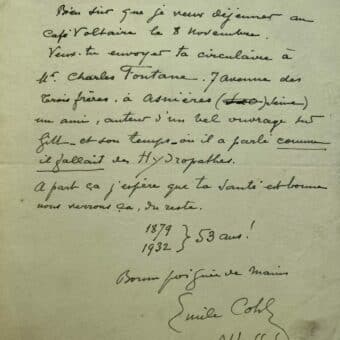 Bien sûr que je veux déjeuner au
Café Voltaire le 8 novembre.
Veux-tu envoyer ta circulaire à
Mr. Charles Fontane. 7 avenue des
Trois frères. à Asnières (Seine)
un ami, auteur d'un bel ouvrage sur
Gill et son temps où il a parlé comme
il fallait des Hydropathes.
A part ça j'espère que ta santé est bonne
nous verrons ça, du reste.
1879
1932 } 53 ans!
Bonne poignée de mains
Emile Cohl